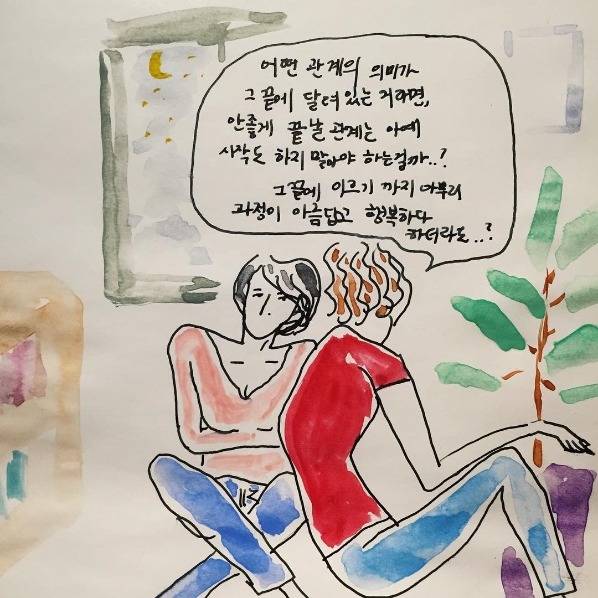 어떤 관계의 의미가
그 끝에 달려있는 거라면,
안좋게 끝날 관계는 아예
시작도 하지 말아야 하는걸까..?
그끝에 이르기 까지 아무리
과정이 아름답고 행복하다
하더라도..?